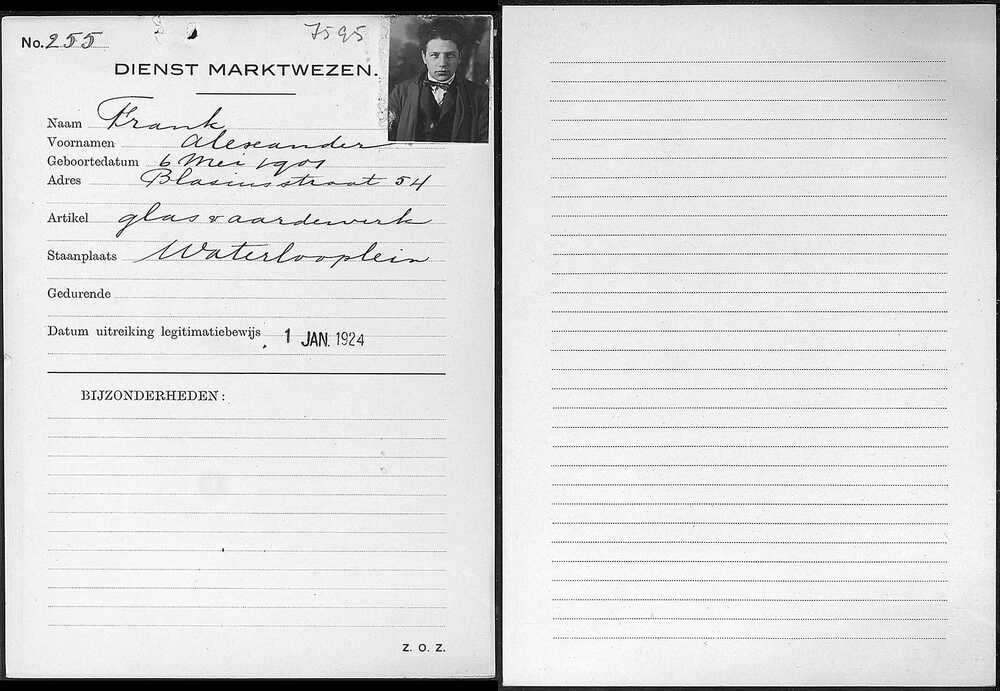 No. 255
7595
DIENST MARKTWEZEN.
Naam Frank
Voornamen Alexander
Geboortedatum 6 Mei 1901
Adres Blasiusstraat 54
Artikel glas & aardewerk
Staanplaats Waterlooplein
Gedurende
Datum uitreiking legitimatiebewijs 1 JAN. 1924
BIJZONDERHEDEN:
Z. O. Z.